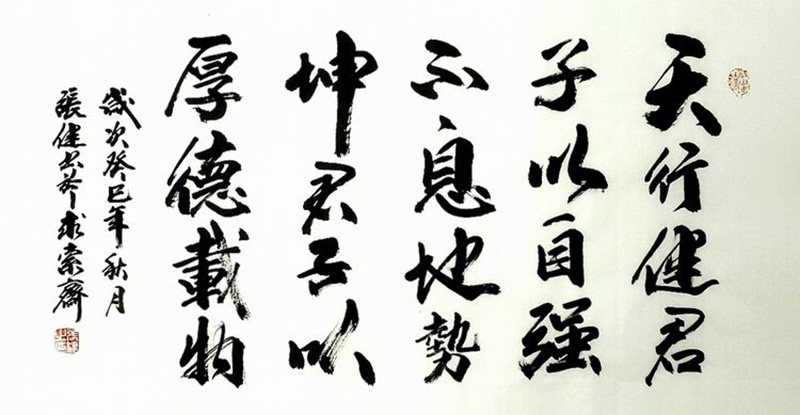 天行健君
子以自强
不息地勢
坤君子以
厚德載物
歲次癸巳年秋月
張健書於求索齋